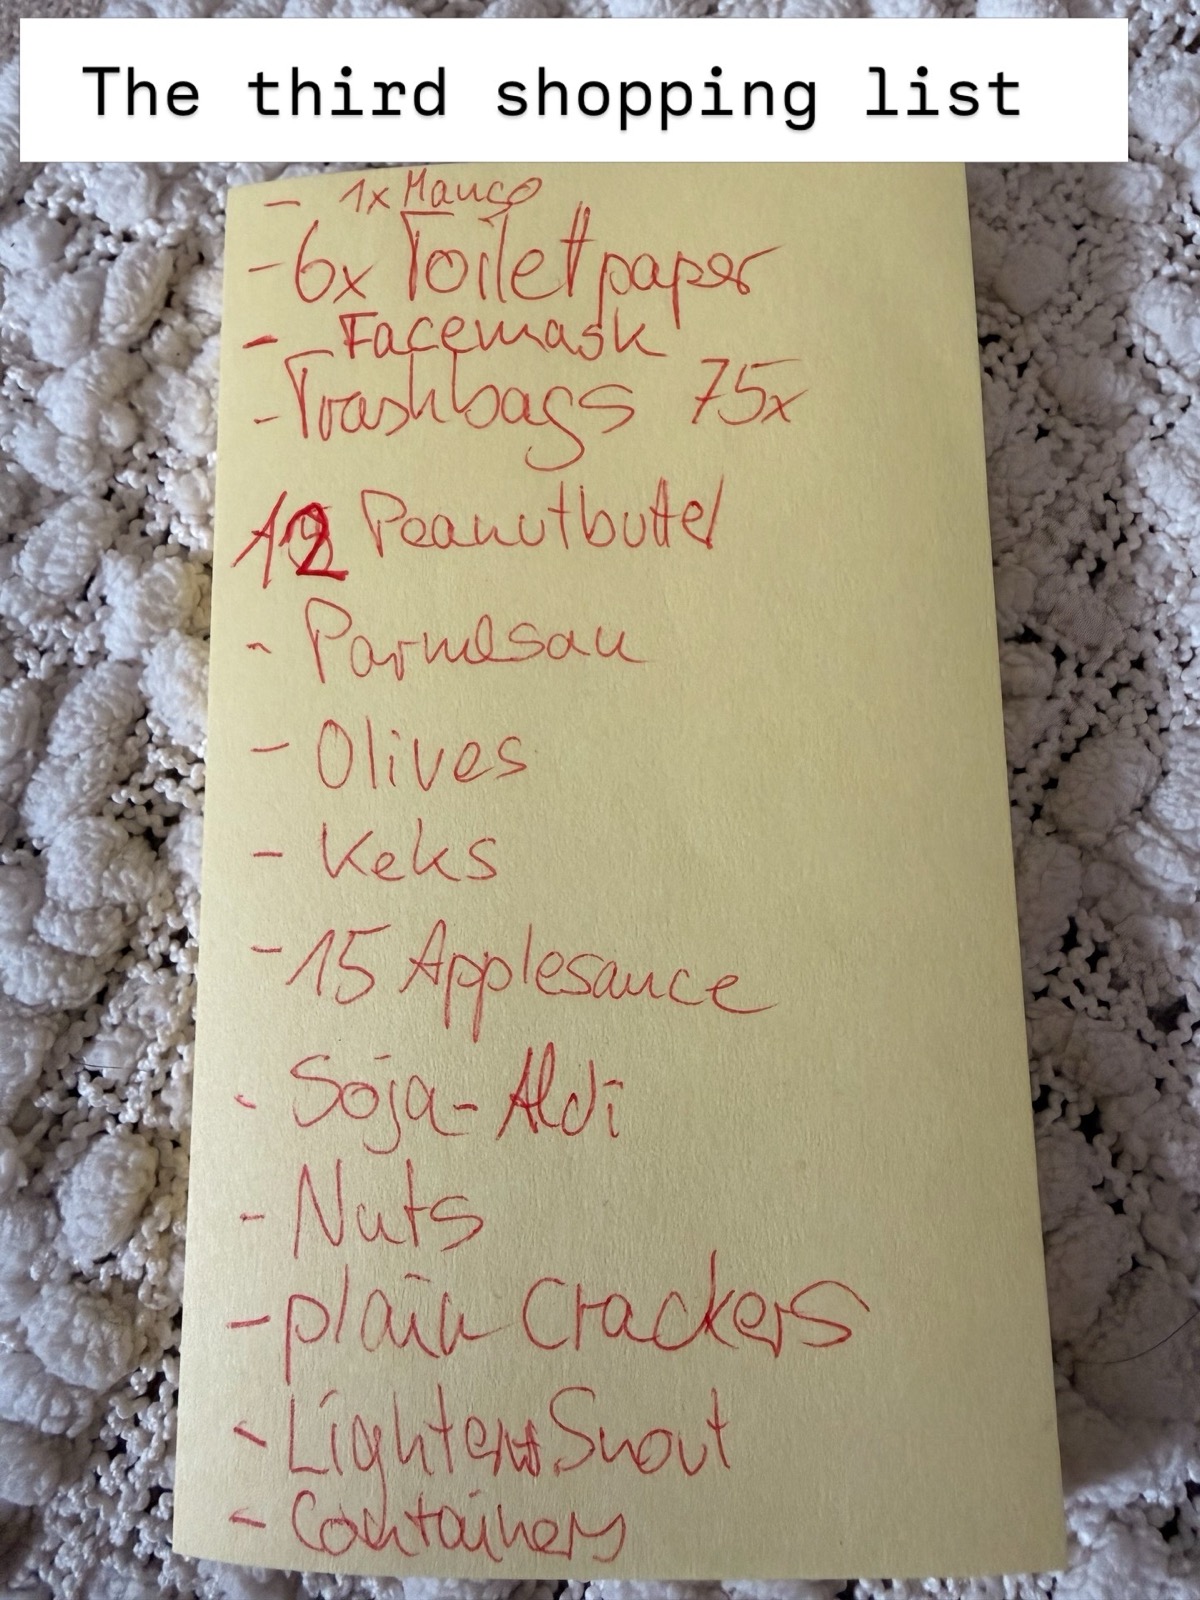 The third shopping list
- 1x Mango
- 6x Toiletpaper
- Facemask
- Trashbags 75x
12 Peanutbutter
- Parmesan
- Olives
- Keks
- 15 Applesauce
- Soja-Aldi
- Nuts
- plain Crackers
- Lighter Snout
- Containers